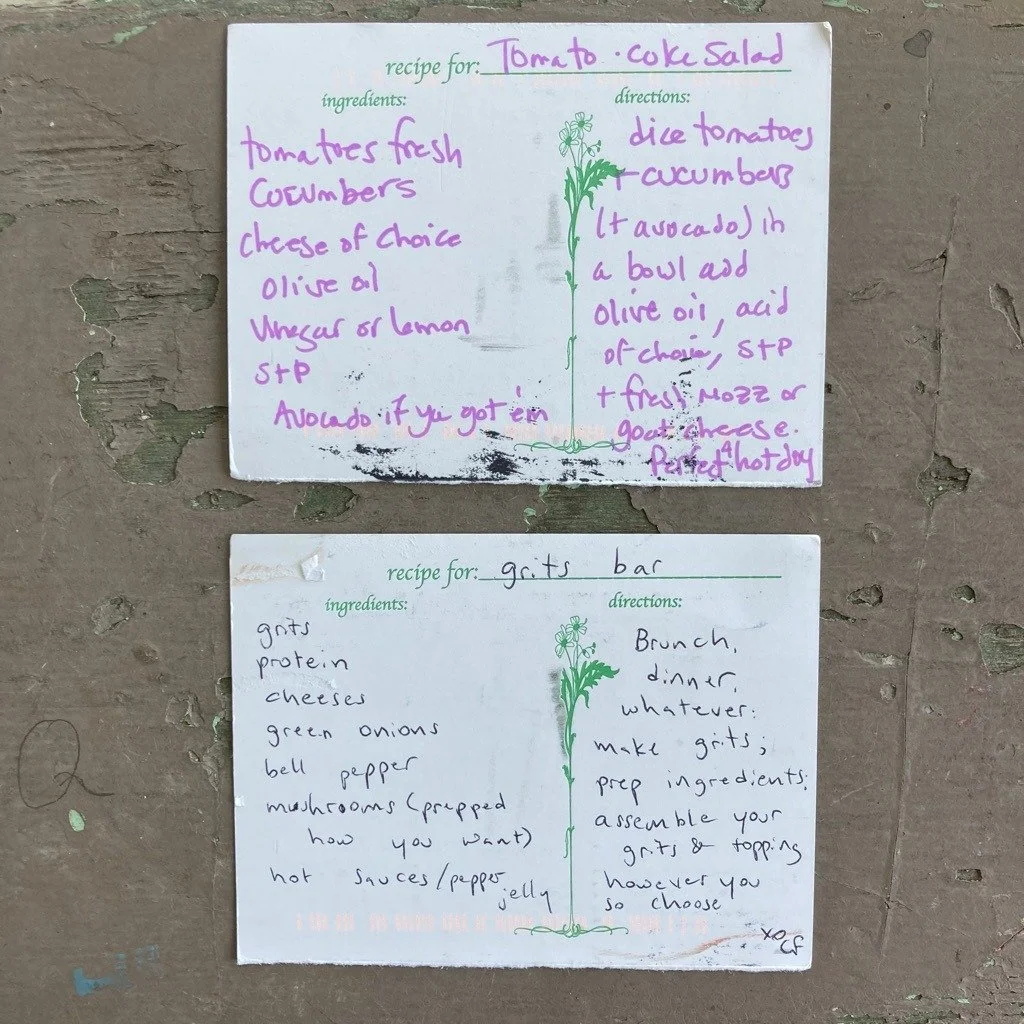 recipe for: Tomato · coke Salad
ingredients:
tomatoes fresh
Cucumbers
cheese of choice
olive oil
vinegar or lemon
S+P
Avocado if you got em
directions:
dice tomatoes
+ cucumbers
(+ avocado) in
a bowl add
olive oil, acid
of choice, S+P
+ fresh mozz or
goat cheese.
Perfect 4 hot day
recipe for: grits bar
ingredients:
grits
protein
cheeses
green onions
bell pepper
mushrooms (prepped
how you want)
hot sauces/pepper
jelly
directions:
Brunch,
dinner,
whatever:
make grits;
prep ingredients;
assemble your
grits & topping
however you
so choose